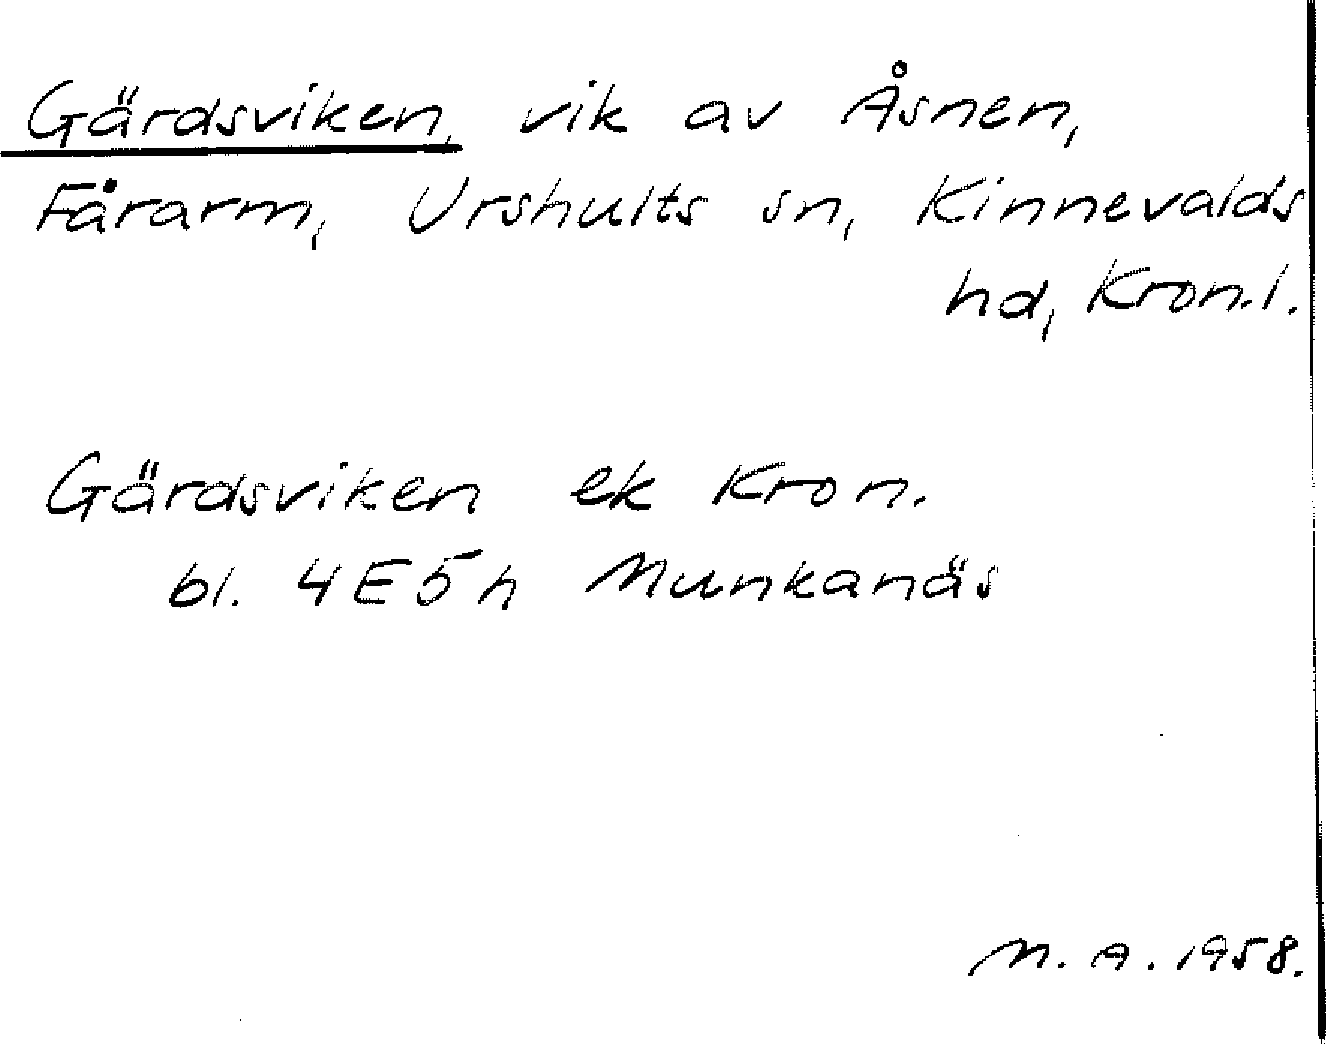 Gärdsviken, vik av Åsnen,
Fårarm, Urshults sn, Kinnevalds
hd, Kron.l.
Gärdsviken ek Kron.
bl. 4E5h Munkanäs
M.A. 1958.